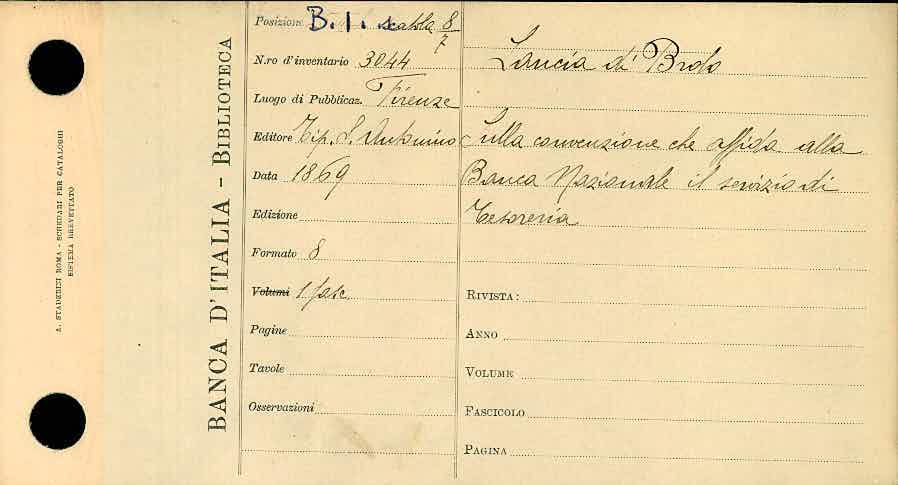 A. STADERINI ROMA - SCHEDARI PER CATALOGHI
SISTEMA BREVETTATO
BANCA D'ITALIA - BIBLIOTECA
Posizione B. I. scatola 8/7
N.ro d'inventario 3044
Luogo di Pubblicaz. Firenze
Editore Tip. S. Antonino
Data 1869
Edizione
Formato 8
Volumi 1 fasc
Pagine
Tavole
Osservazioni
Lancia di Brolo
Sulla convenzione che affida alla
Banca Nazionale il servizio di
Tesoreria
RIVISTA:
ANNO
VOLUME
FASCICOLO
PAGINA